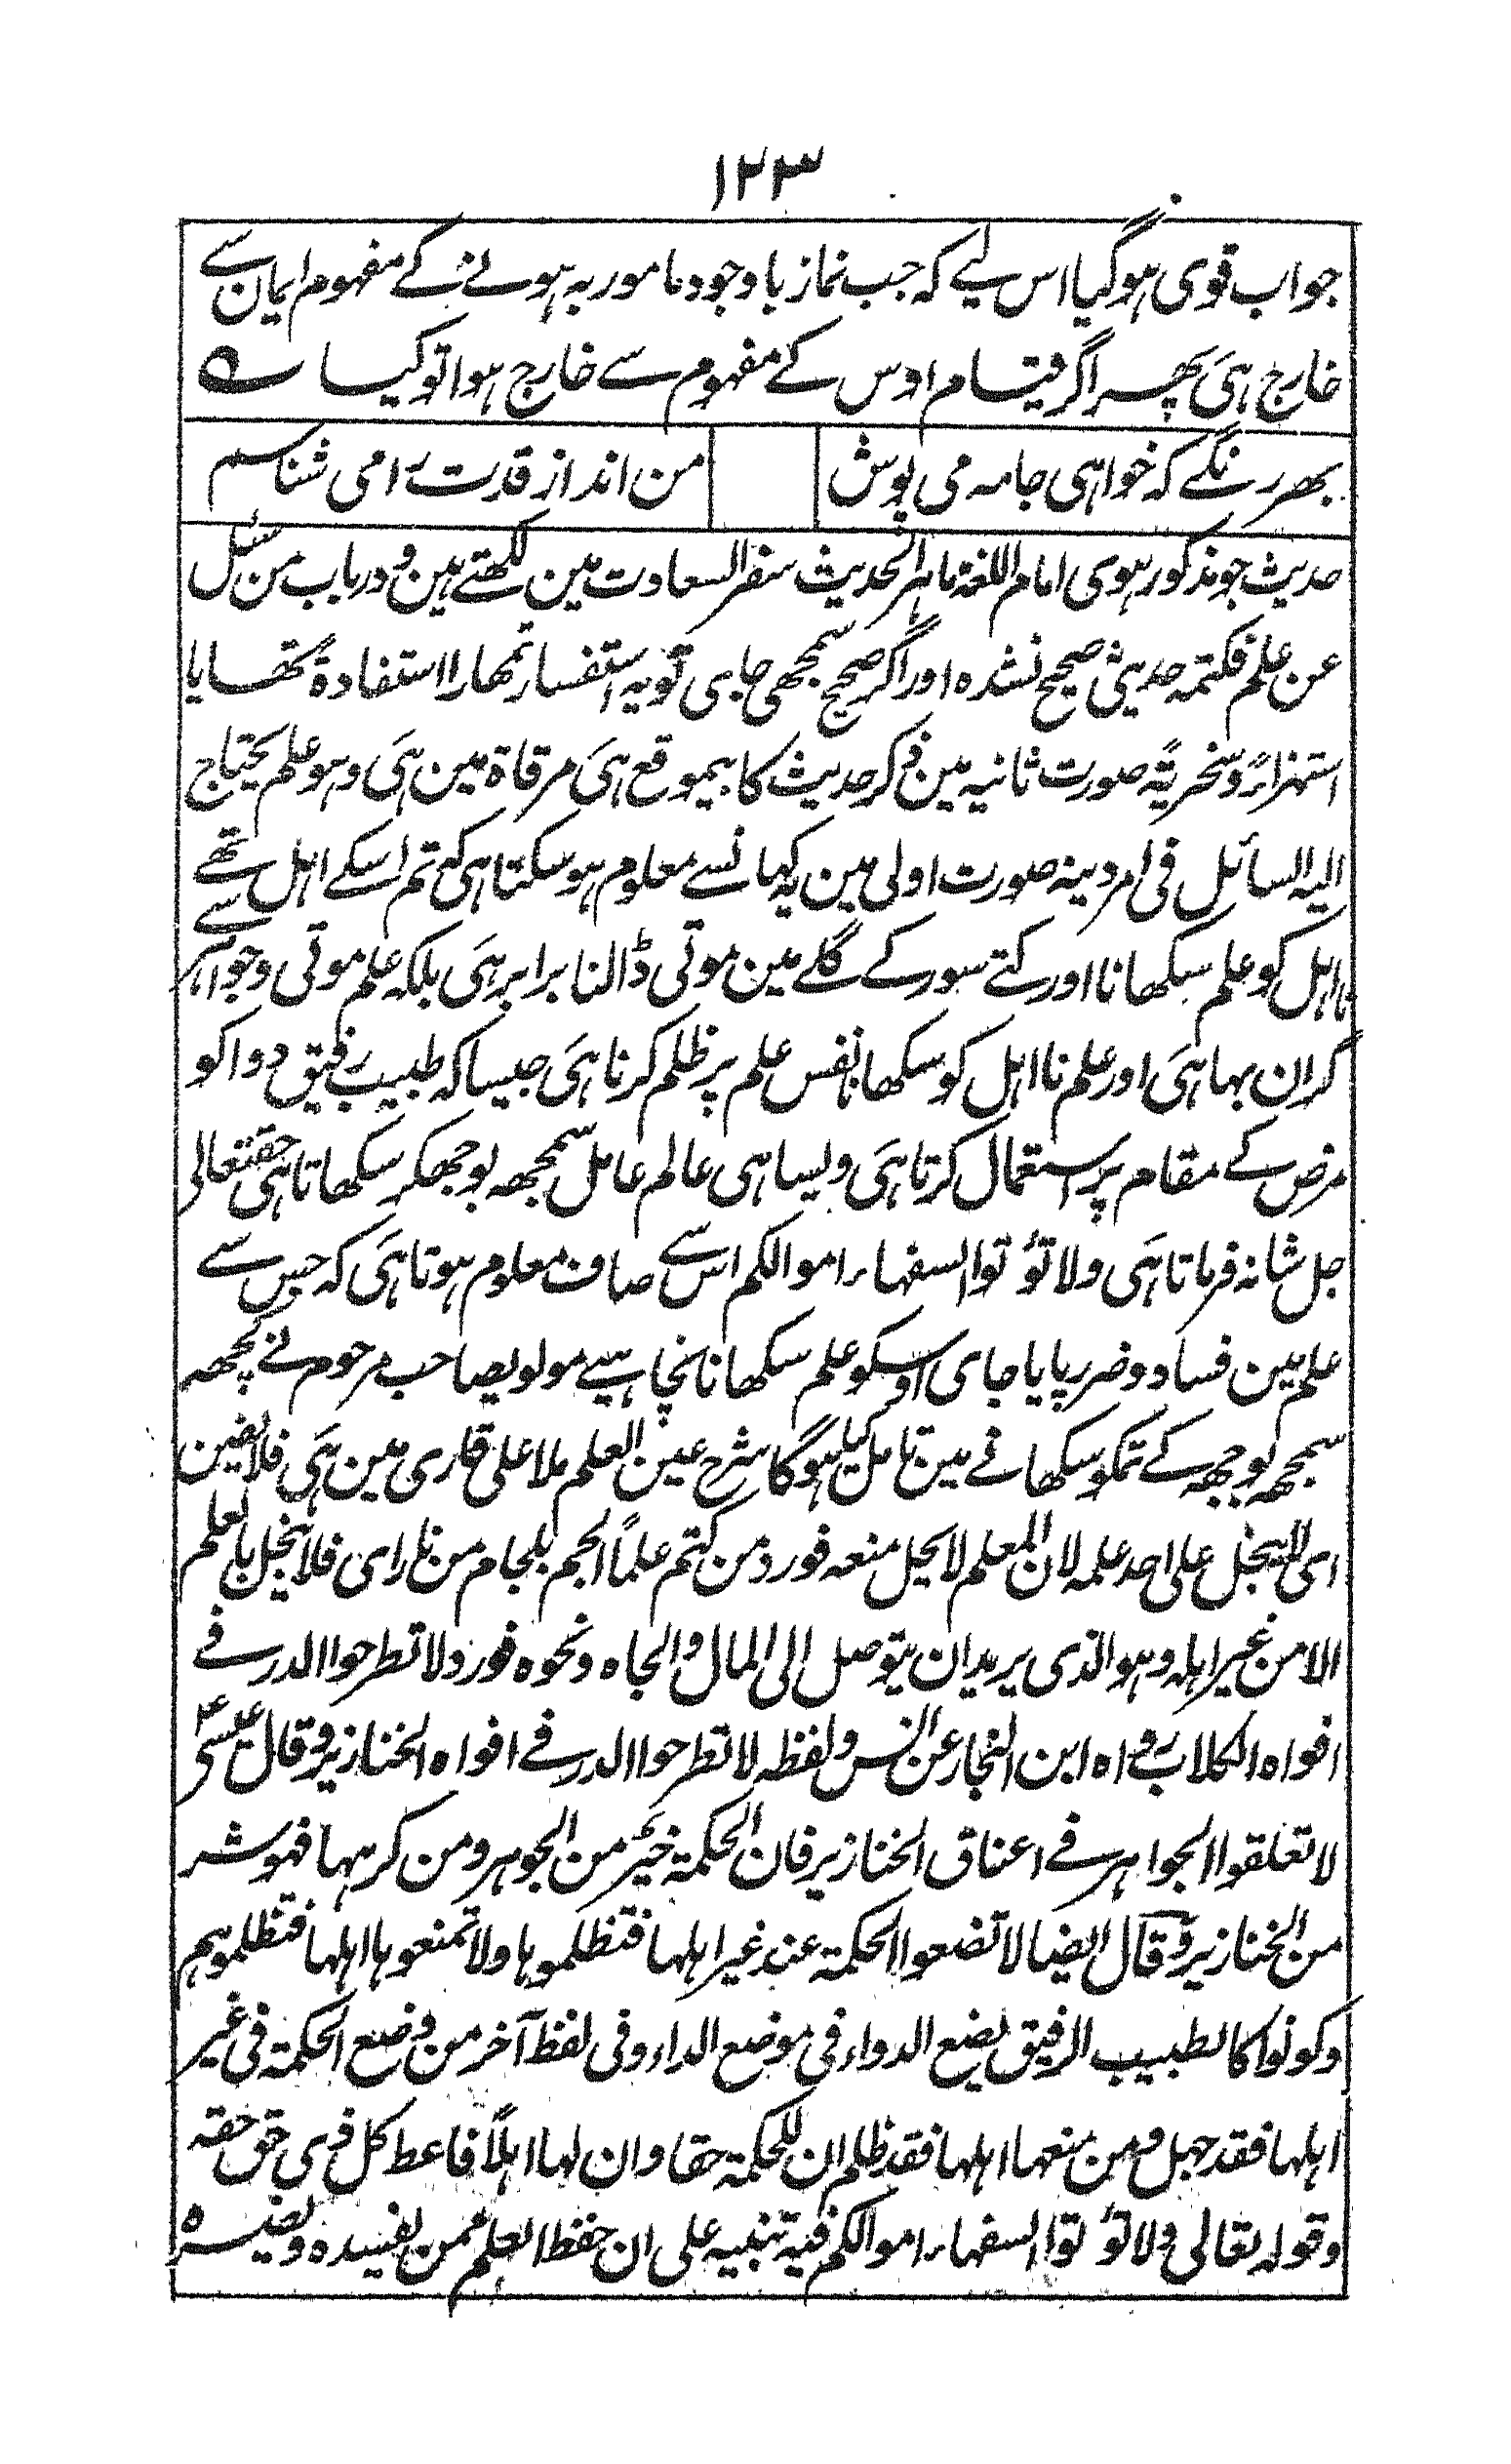 ۱۲۳
جواب قوی ہوگیا اس لیے کہ جب نماز باوجود مامور بہ ہونے کے مفہوم ایمان سے
خارج ہی پھر اگر قیام اوس کے مفہوم سے خارج ہوا تو کیسا ے
بھر رنگے کہ خواہی جامہ می پوش من انداز قدت را می شناسم
حدیث جو مذکور ہوی امام اللغۃ ماہر الحدیث سفر السعادت مین لکھتے ہین و در باب من سئل
عن علم فکتمہ حدیثی صحیح نشدہ اور اگر صحیح سمجھی جاہی تو یہ استفسار تمھارا استفادۃً تھا یا
استہزاءً و سخریۃً صورت ثانیہ مین ذکر حدیث کا بیموقع ہی مرقاۃ مین ہی وہو علم یحتاج
الیہ السائل فی امر دینہ صورت اولی مین یہ کہانسے معلوم ہوسکتا ہی کہ تم اسکے اہل تھے
نااہل کو علم سیکھانا اور کتے سور کے گلے مین موتی ڈالنا برابر ہی بلکہ علم موتی و جواہر سے
گران بہا ہی اور علم نااہل کو سکھانا نفس علم پر ظلم کرنا ہی جیسا کہ طبیب رفیق دوا کو
مرض کے مقام پر استعمال کرتا ہی ویسا ہی عالم عامل سمجھہ بوجھکر سکھاتا ہی حقتعالی
جل شانہ فرماتا ہی ولا تؤتوا السفہاء اموالکم اس سے صاف معلوم ہوتا ہی کہ جس سے
علم مین فساد و ضرر پایا جای اوسکو علم سکھانا نچاہیے مولویصاحب مرحوم نے کچھہ
سمجھہ بوجھہ کے تمکو سکھانے مین تامل کیا ہوگا شرح عین العلم ملا علی قاری مین ہی فلا یضین
ای لا یبخل علی احد علمہ لان المعلم لا یحل منعہ فورد من کتم علمًا الجم بلجام من نار ای فلا یبخل بالعلم
الا من غیر اہلہ وہو الذی یرید ان یتوصل الی المال والجاہ ونحوہ فورد لا تطرحوا الدر فے
افواہ الکلاب رواہ ابن النجار عن انس ولفظہ لا تطرحوا الدر فے افواہ الخنازیر وقال عیسیؑ
لا تعلقوا الجواہر فے اعناق الخنازیر فان الحکمۃ خیر من الجوہر ومن کرہہا فہو شر
من الخنازیر وقال ایضا لا تضعوا الحکمۃ عند غیر اہلہا فتظلموہا ولا تمنعوہا اہلہا فتظلموہم
وکونوا کالطبیب الرفیق یضع الدواء فی موضع الداء وفی لفظ آخر من وضع الحکمۃ فی غیر
اہلہا فقد جہل ومن منعہا اہلہا فقد ظلم ان للحکمۃ حقا وان لہا اہلًا فاعط کل ذی حق حقہ
وقولہ تعالی ولا تؤتوا السفہاء اموالکم فیہ تنبیہ علی ان حفظ العلم ممن یفسدہ ویضرہ